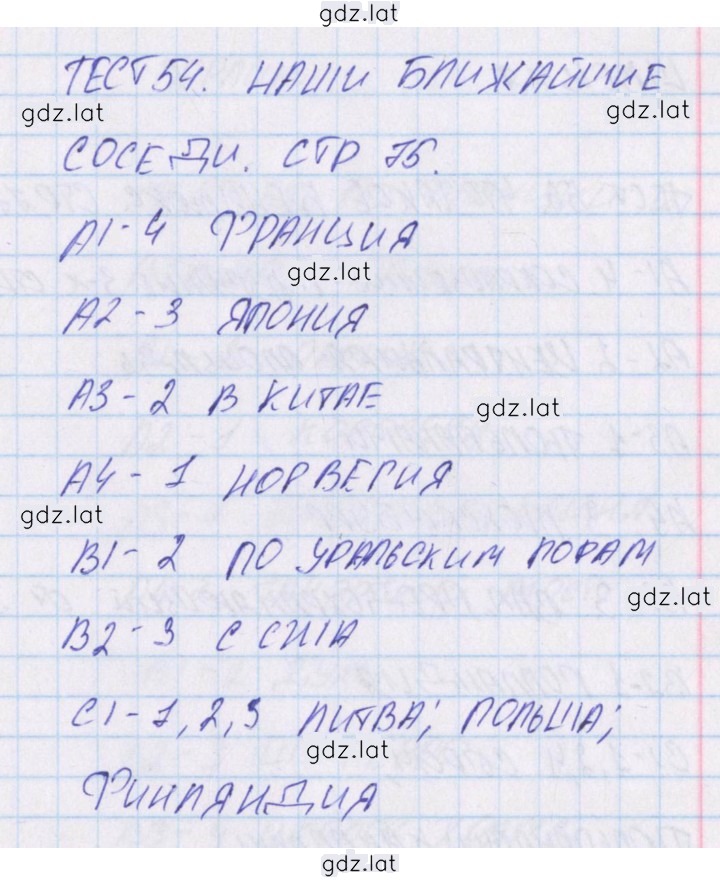 gdz.lat
ТЕСТ 54. НАШИ БЛИЖАЙШИЕ
gdz.lat
gdz.lat
СОСЕДИ. СТР 75.
А1-4 ФРАНЦИЯ
gdz.lat
А2-3 ЯПОНИЯ
А3-2 В КИТАЕ
gdz.lat
А4-1 НОРВЕГИЯ
gdz.lat
В1-2 ПО УРАЛЬСКИМ ГОРАМ
gdz.lat
В2-3 С США
С1-1,2,3 ЛИТВА; ПОЛЬША;
gdz.lat
ФИНЛЯНДИЯ
gdz.lat